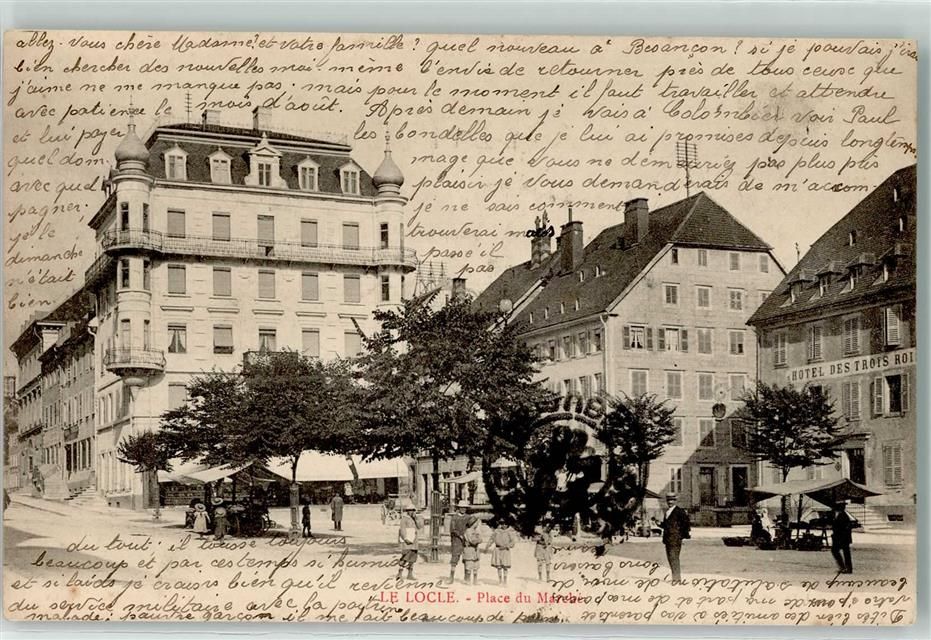 allez-vous chère Madame? et votre famille? quel nouveau à Besançon? si je pouvais j'irai
bien chercher des nouvelles moi-même l'envie de retourner près de tous ceux que
j'aime ne me manque pas; mais pour le moment il faut travailler et attendre
avec patience le mois d'août. Après demain je vais à Colombier voir Paul
et lui payer les bondelles que je lui ai promises depuis longtemps
quel dom mage que vous ne demeuriez pas plus près
avec quel plaisir je vous demanderais de m'accom
pagner. je ne sais comment
je le trouverai mais
n'était passe il
bien pas
HOTEL DES TROIS ROI
du tout; il tousse toujours
beaucoup et par ces temps si humides
et si lards je crains bien qu'il revienne
du service militaire avec la poitrine
malade; pauvre garçon il me fait beaucoup de
LE LOCLE. - Place du Marché
bons baisers
beaucoup de salutations, de moi,
votre de ma part et de ma
Dites bien des amitiés à vos parents et